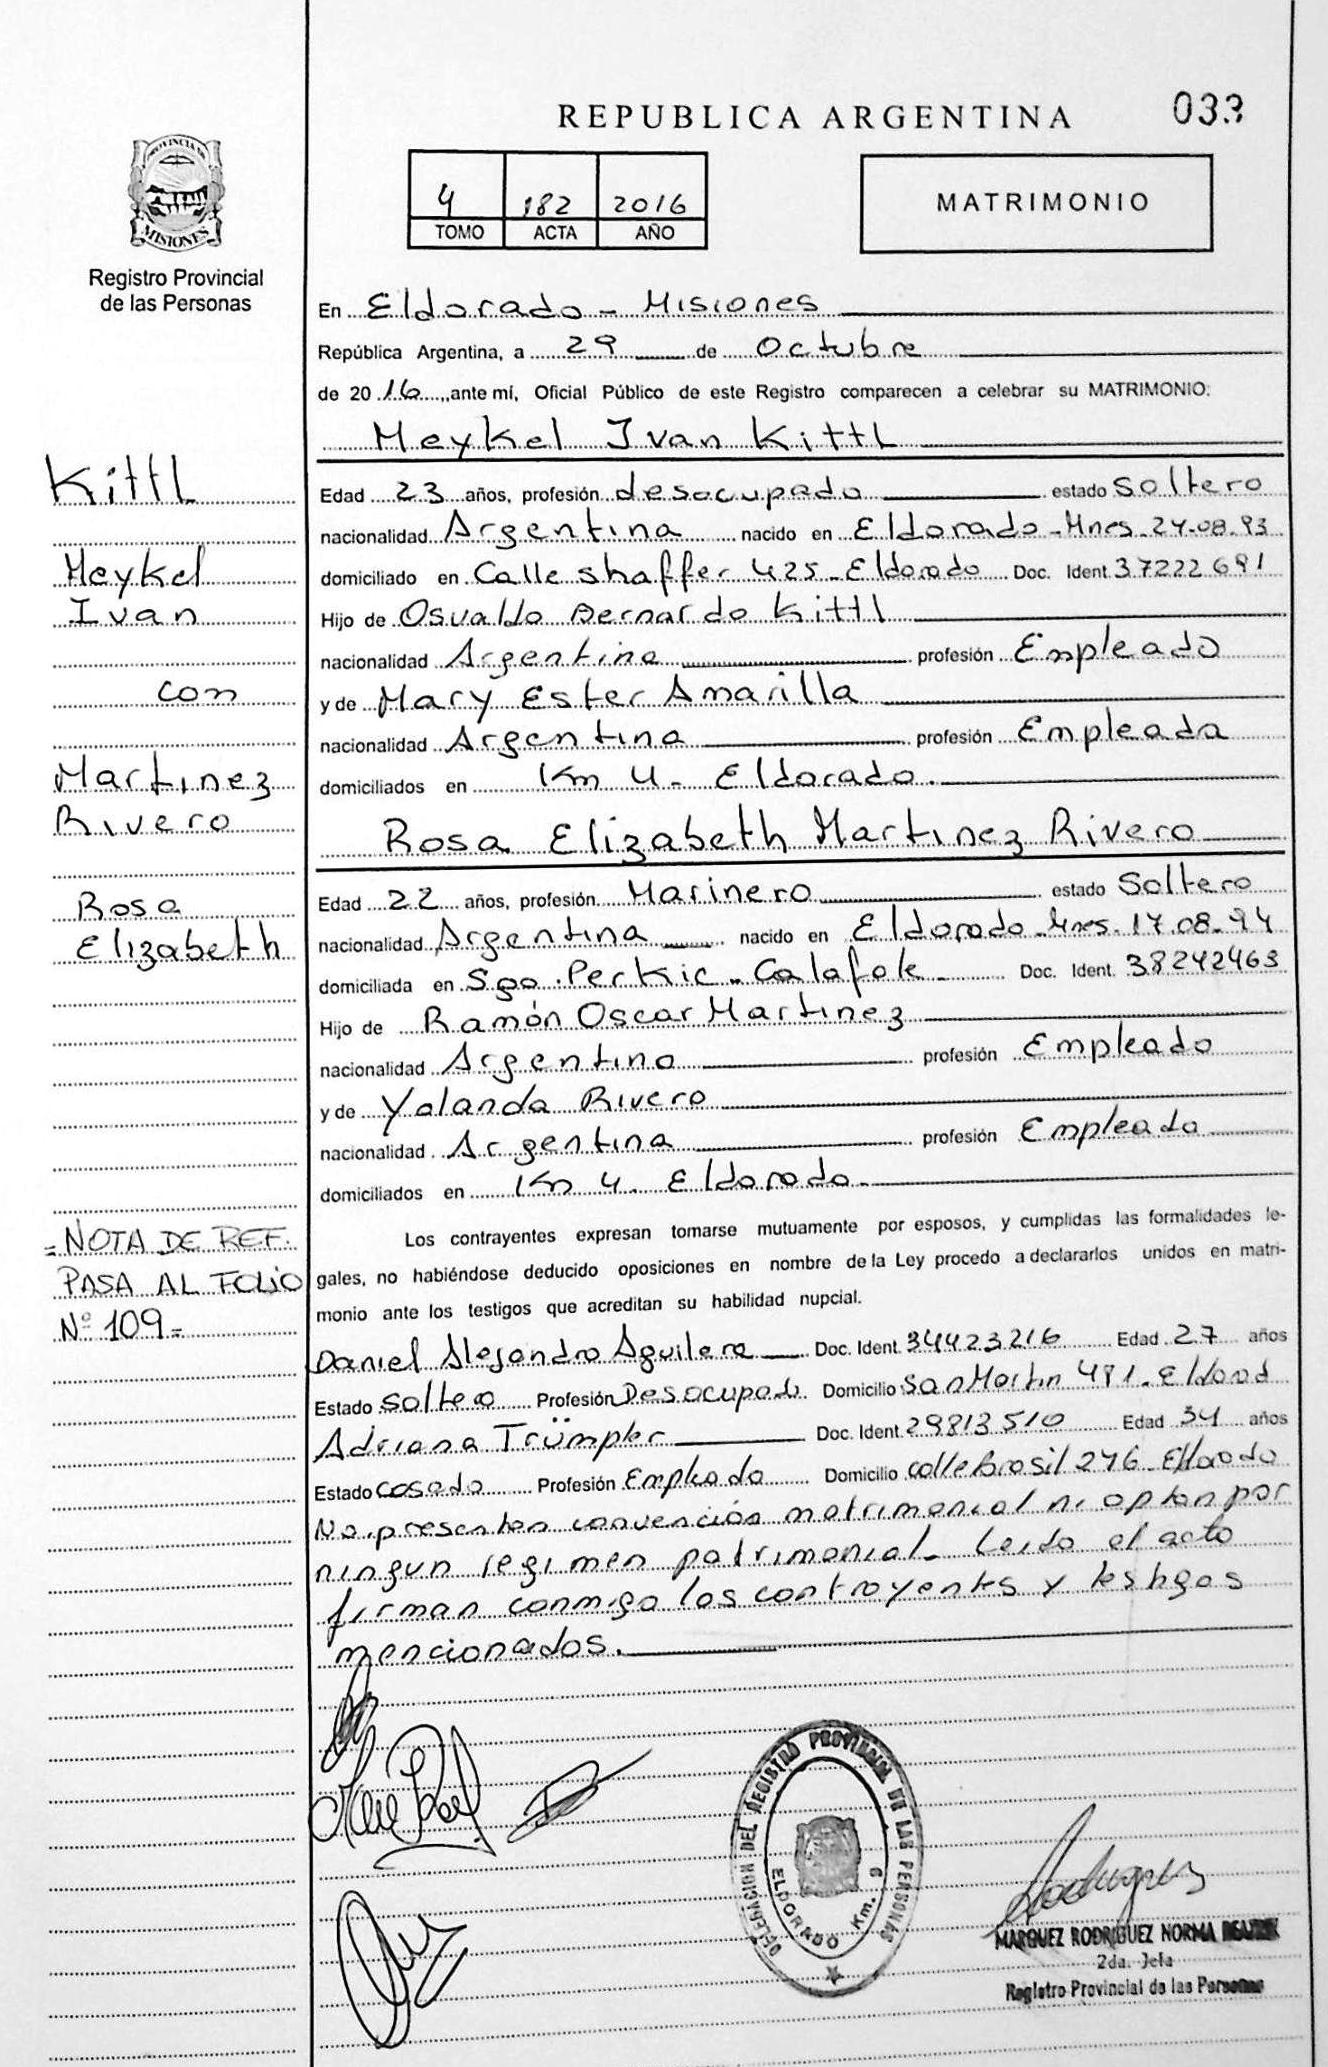 REPUBLICA ARGENTINA
033
PROVINCIA DE
MISIONES
Registro Provincial
de las Personas
4 182 2016
TOMO ACTA AÑO
MATRIMONIO
En Eldorado - Misiones
República Argentina, a 29 de Octubre
de 2016, ante mí, Oficial Público de este Registro comparecen a celebrar su MATRIMONIO:
Meykel Ivan Kittl
Kittl
Meykel
Ivan
con
Martinez
Rivero
Rosa
Elizabeth
Edad 23 años, profesión desocupado estado Soltero
nacionalidad Argentina nacido en Eldorado - Mnes. 24.08.93
domiciliado en Calle shaffer 425 - Eldorado Doc. Ident. 37222691
Hijo de Osvaldo Bernardo Kittl
nacionalidad Argentina profesión Empleado
y de Mary Ester Amarilla
nacionalidad Argentina profesión Empleada
domiciliados en Km 4 - Eldorado.
Rosa Elizabeth Martinez Rivero
Edad 22 años, profesión Marinero estado Soltero
nacionalidad Argentina nacido en Eldorado - Mnes. 17.08.94
domiciliada en Sgo. Perkic - Calafate - Doc. Ident. 38242463
Hijo de Ramón Oscar Martinez
nacionalidad Argentina profesión Empleado
y de Yolanda Rivero
nacionalidad Argentina profesión Empleada
domiciliados en Km 4. Eldorado -
= NOTA DE REF.
PASA AL FOLIO
Nº 109 =
Los contrayentes expresan tomarse mutuamente por esposos, y cumplidas las formalidades le-
gales, no habiéndose deducido oposiciones en nombre de la Ley procedo a declararlos unidos en matri-
monio ante los testigos que acreditan su habilidad nupcial.
Daniel Alejandro Aguilera Doc. Ident. 34423216 Edad 27 años
Estado soltero Profesión Desocupado Domicilio San Martin 481 - Eldorad
Adriana Trümpler Doc. Ident. 29813510 Edad 34 años
Estado casada Profesión Empleada Domicilio calle Brasil 276 - Eldorado
No presentan convención matrimonial ni optan por
ningun regimen patrimonial - Leida el acta
firman conmigo los contrayentes y testigos
mencionados.
DELEGACION DEL REGISTRO PROVINCIAL DE LAS PERSONAS
ELDORADO Km. 6
MARQUEZ RODRIGUEZ NORMA
2da. Jefa
Registro Provincial de las Personas